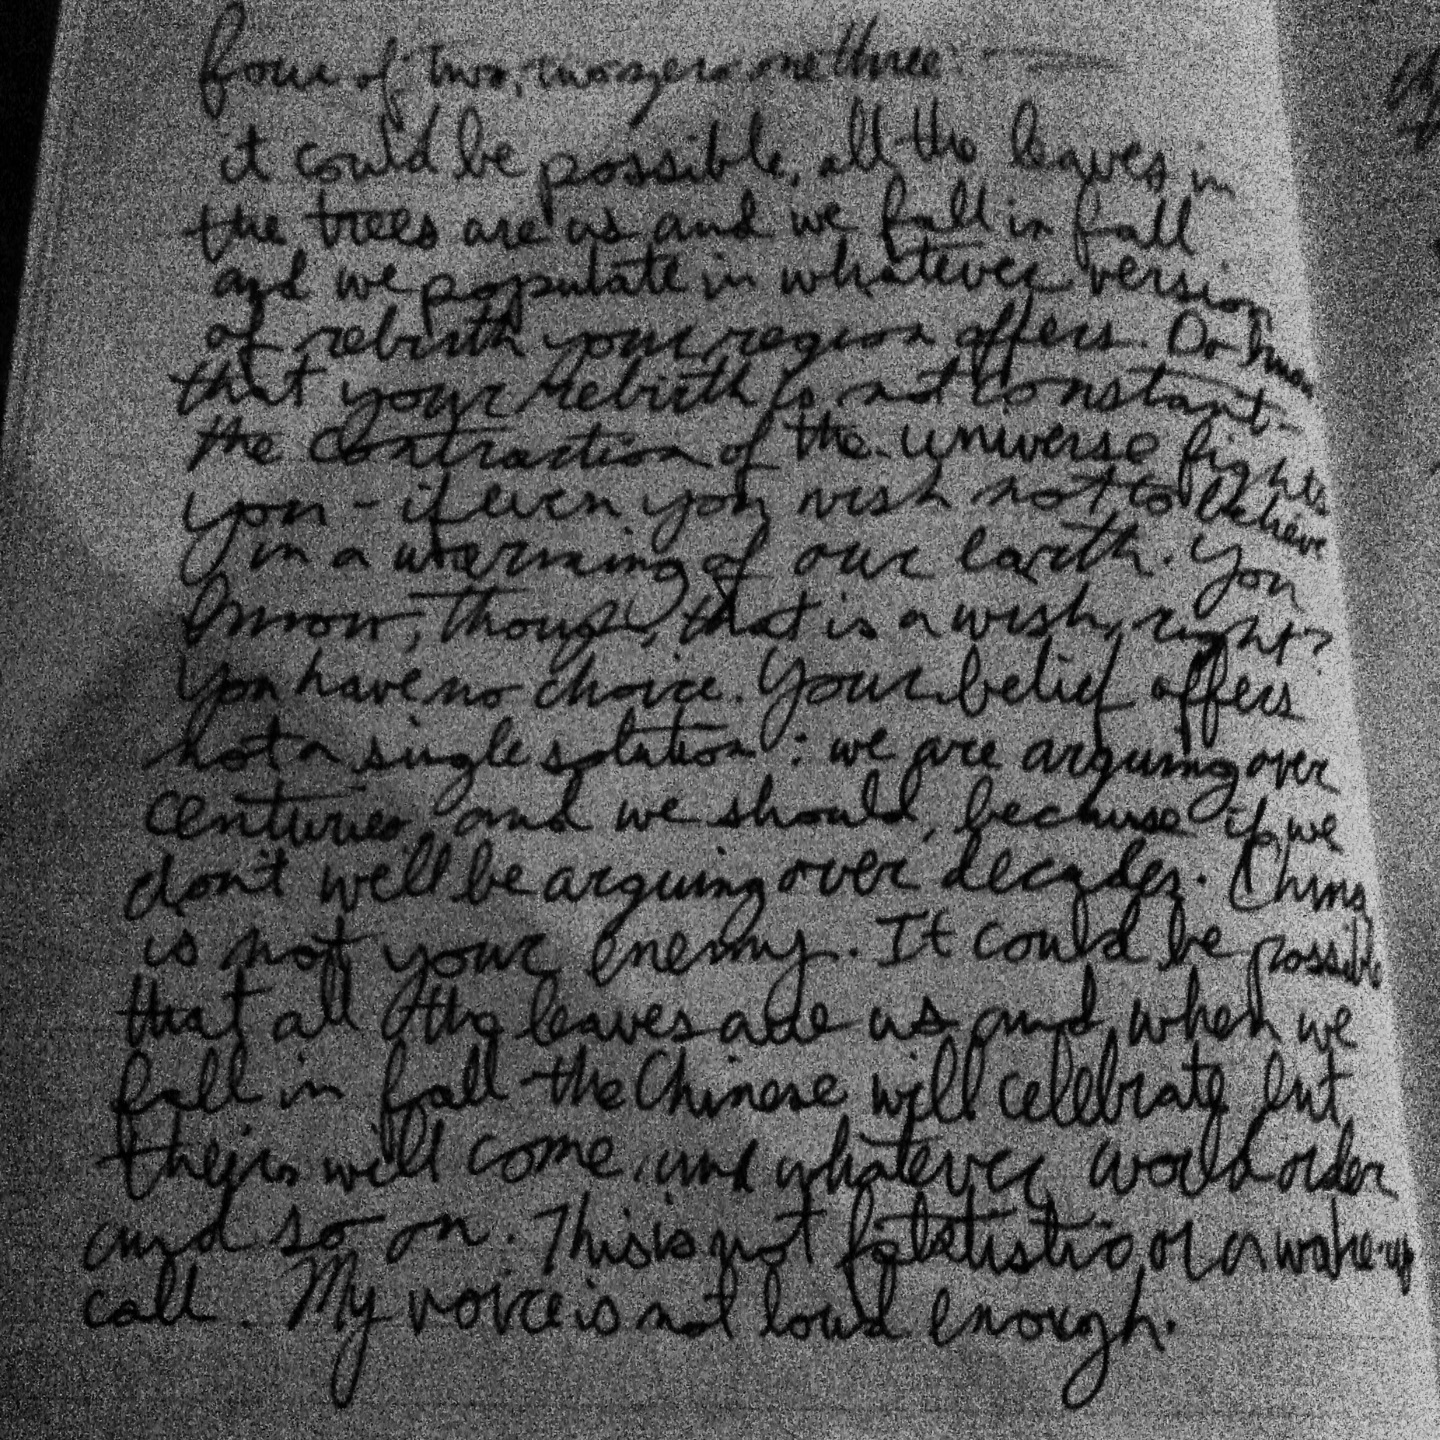 four of two, two zero one three:
it could be possible, all the leaves in
the trees are us and we fall in fall
and we populate in whatever version
of rebirth your region offers. Do know
that your rebirth is not constant-
the contraction of the universe fights
you - if even you wish not to believe
in a warming of our earth. You
know, though, that is a wish, right?
You have no choice. Your belief offers
not a single solution: we are arguing over
centuries, and we should, because if we
don't we'll be arguing over decades. China
is not your enemy. It could be possible
that all the leaves are us and when we
fall in fall the Chinese will celebrate but
theirs will come, and whatever world order
and so on. This is not fatalistic or a wake-up
call. My voice is not loud enough.